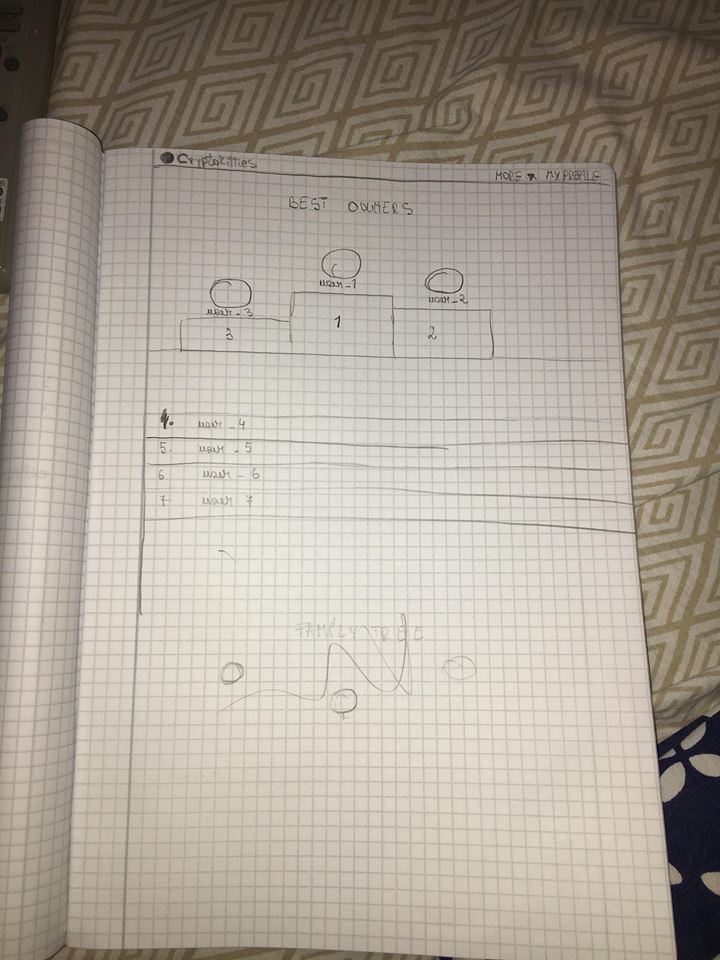 Cryptokitties
MORE ▾ MY PROFILE
BEST OWNERS
user-1
user-2
user-3
1
2
3
4. user-4
5. user-5
6 user-6
7 user 7
FAMILY TREE